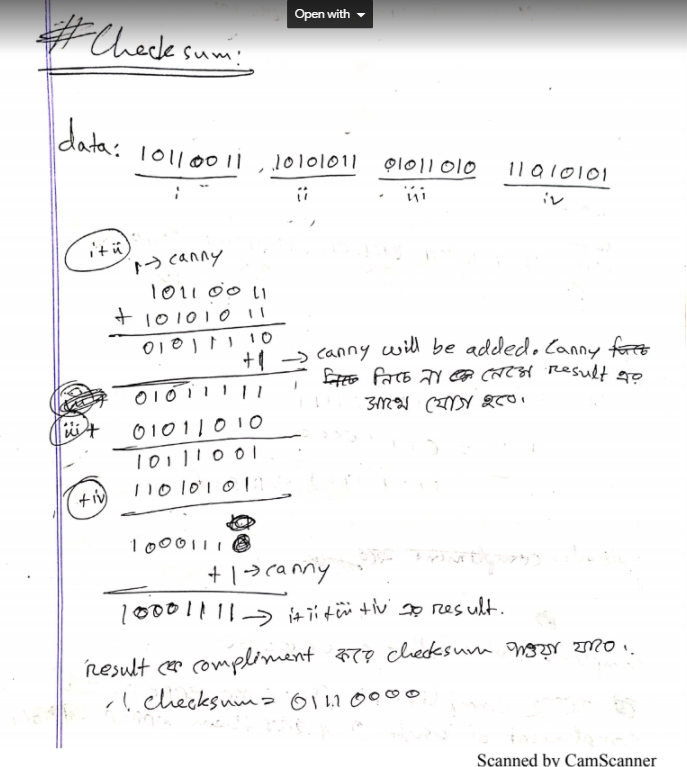 Open with
# Checksum:
data: 10110011 10101011 01011010 11010101
i ii iii iv
i+ii
1 → canny
10110011
+ 10101011
01011110
+1 → canny will be added. Canny
নিচে না নেমে result এর
01011111
সাথে যোগ হবে।
iii + 01011010
10111001
+iv 11010101
1000111
+1 → canny
10001111 → i+ii+iii+iv এর result.
result কে compliment করে checksum পাওয়া যাবে।
checksum = 01110000
Scanned by CamScanner